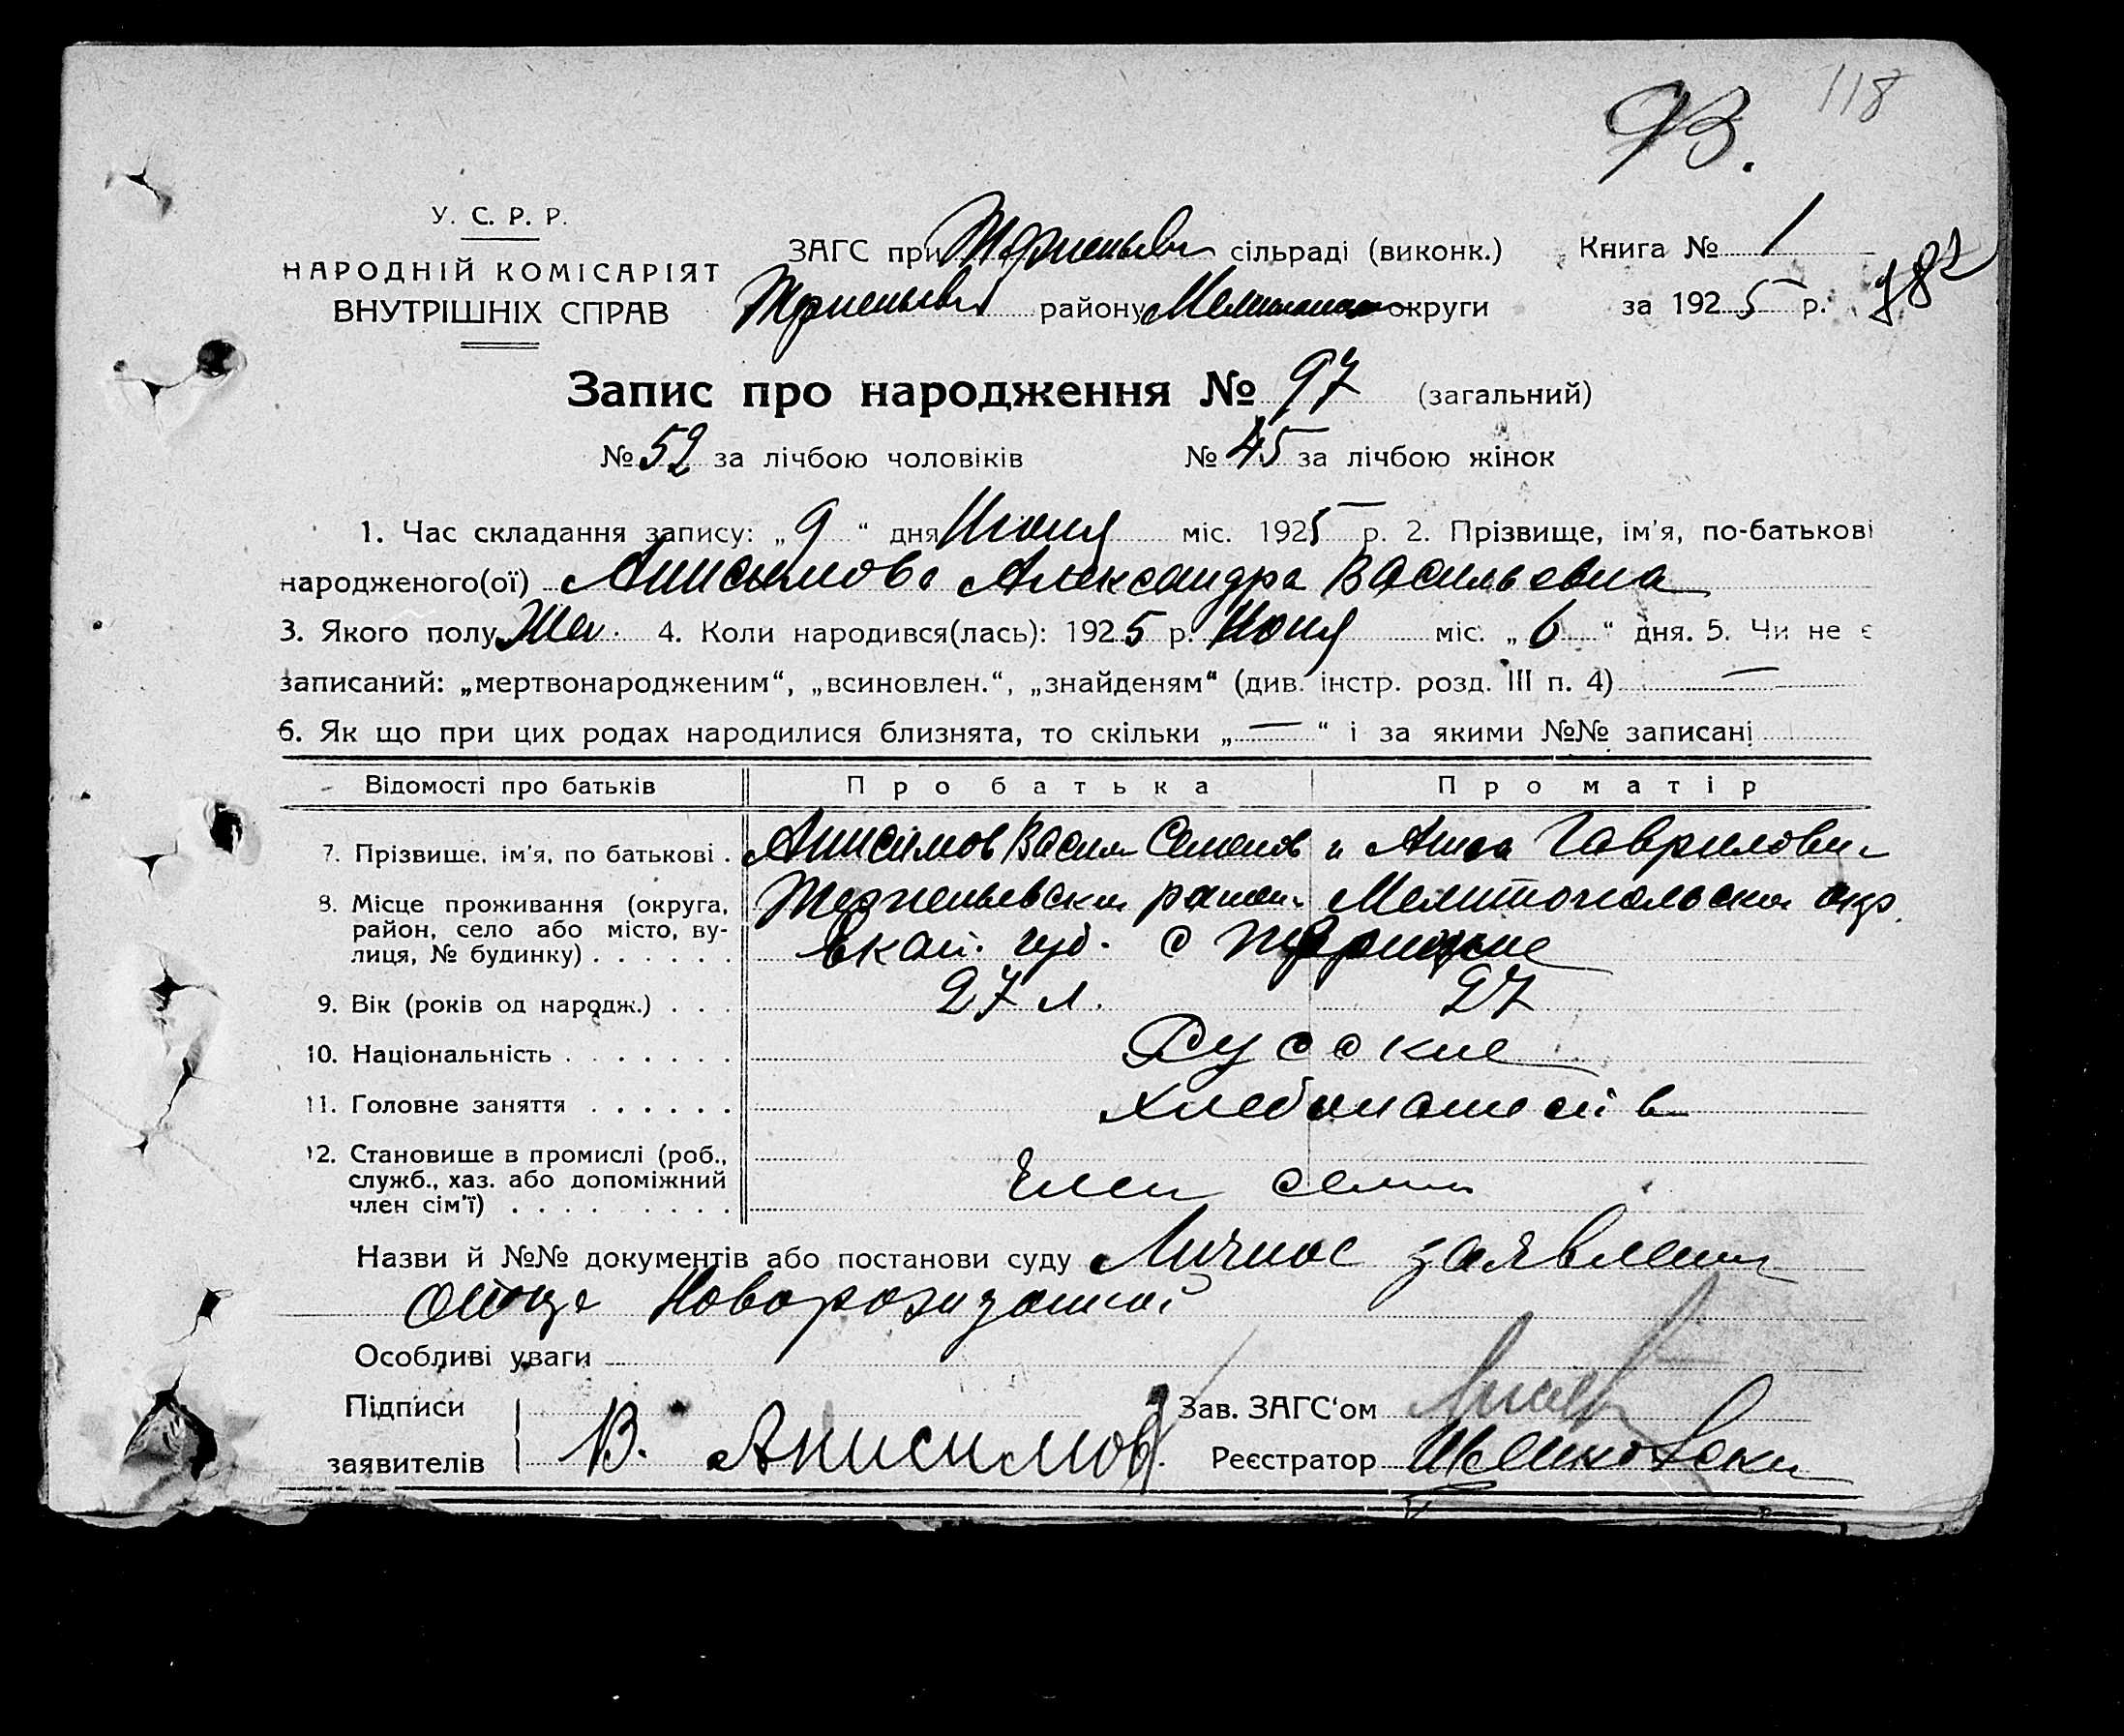 118
93.
У. С. Р. Р.
НАРОДНІЙ КОМІСАРІЯТ
ВНУТРІШНІХ СПРАВ
ЗАГС при сільраді (виконк.) Книга № 1
району округи за 1925 р. 182
Запис про народження № 97 (загальний)
№ 52 за лічбою чоловіків № 45 за лічбою жінок
1. Час складання запису: „9“ дня Июня міс. 1925 р. 2. Прізвище, ім'я, по-батькові
народженого(ої) Анисимова Александра Васильевна
3. Якого полу Жен. 4. Коли народився(лась): 1925 р. Июня міс. „6“ дня. 5. Чи не є
записаний: „мертвонародженим“, „всиновлен.“, „знайденям“ (див. інстр. розд. III п. 4) —
6. Як що при цих родах народилися близнята, то скільки „—“ і за якими №№ записані
Відомості про батьків Про батька Про матір
7. Прізвище, ім'я, по батькові . Анисимов Васили Семенов и Анна Гаврилови
8. Місце проживання (округа, Мелитопольски окр.
район, село або місто, ву-
лиця, № будинку) . . . . . . губ. с
9. Вік (років од народж.) . . . 27 л. 27
10. Національність . . . . . . . Русские
11. Головне заняття . . . . . . Хлебопашест в
12. Становище в промислі (роб.,
служб., хаз. або допоміжний Член семи
член сім'ї) . . . . . . . . .
Назви й №№ документів або постанови суду Личное заявлени
отца Новорожданной
Особливі уваги
Підписи Зав. ЗАГС'ом
заявителів В. Анисимов Реєстратор